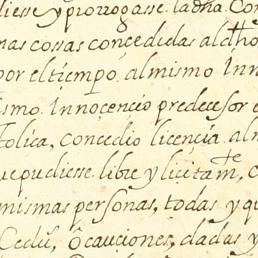 diesse y prorrogasse la dha Con
nas cosas concedidas al dcho
por el tiempo, al mismo Inn
ismo Innocencio predecesor e
tolica, concedio licencia al n
ue pudiesse libre y licitamte, c
mismas personas, todas y qu
Cedu, ò cauciones, dadas y